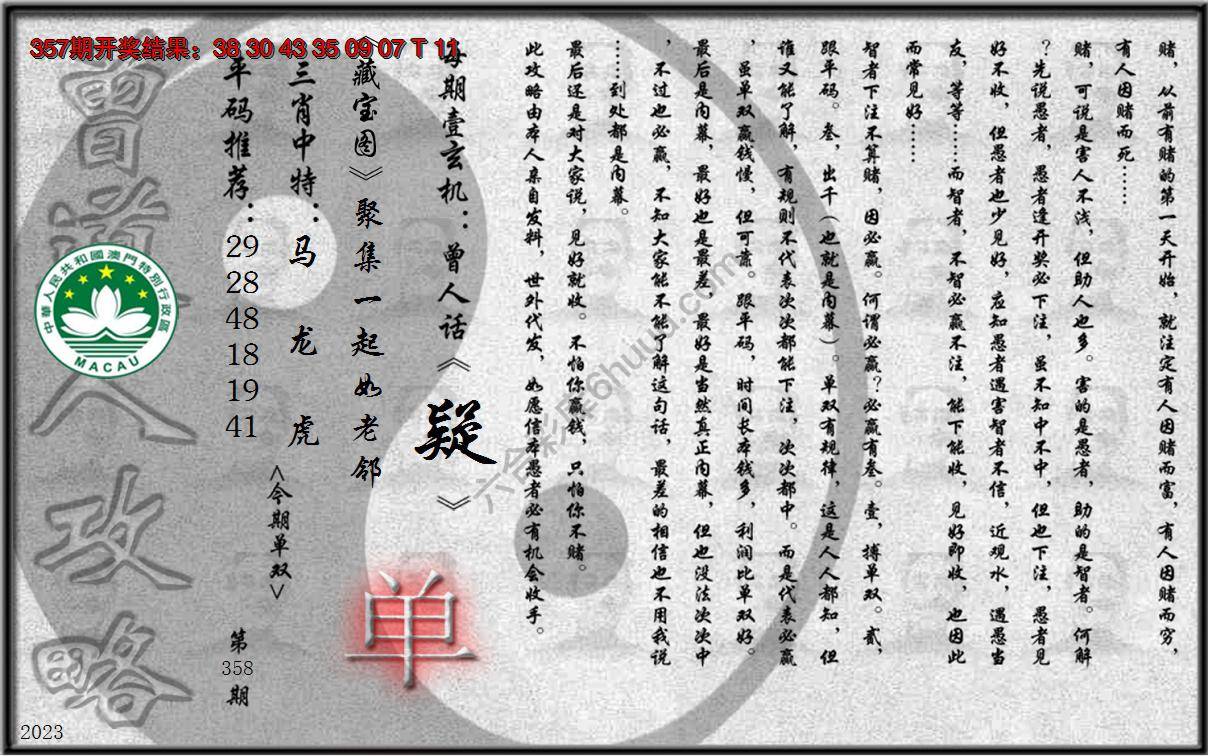 357期开奖结果：38 30 43 35 09 07 T 11
赌，从前有赌的第一天开始，就注定有人因赌而富，有人因赌而穷，
有人因赌而死……
赌，可说是害人不浅，但助人也多。害的是愚者，助的是智者。何解
？先说愚者，愚者逢开奖必下注，虽不知中不中，但也下注，愚者见
好不收，但愚者也少见好，应知愚者遇害智者不信，近观水，遇愚当
友，等等……而智者，不智必赢不注，能下能收，见好即收，也因此
而常见好……
智者下注不算赌，因必赢。何谓必赢？必赢有叁。壹，搏单双。贰，
跟平码。叁，出千（也就是内幕）。单双有规律，这是人人都知，但
谁又能了解，有规则不代表次次都能下注，次次都中。而是代表必赢
，虽单双赢钱慢，但可靠。跟平码，时间长本钱多，利润比单双好。
最后是内幕，最好也是最差，最好是当然真正内幕，但也没法次次中
，不过也必赢，不知大家能不能了解这句话，最差的相信也不用我说
……到处都是内幕。
最后还是对大家说，见好就收。不怕你赢钱，只怕你不赌。
此攻略由本人亲自发料，世外代发，如愿信本愚者必有机会收手。
每期壹玄机：曾人话《疑》
《藏宝图》聚集一起如老邻
三肖中特：马 龙 虎
<今期单双>
单
平码推荐：
29
28
48
18
19
41
第
358
期
曾道人攻略
中華人民共和國澳門特別行政區
MACAU
2023